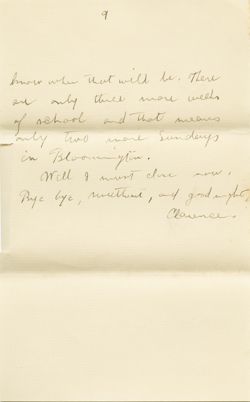 9
know when that will be. There
are only three more weeks
of school and that means
only two more Sundays
in Bloomington.
Well I must close now.
Bye bye, sweetheart, and good night,
Clarence.